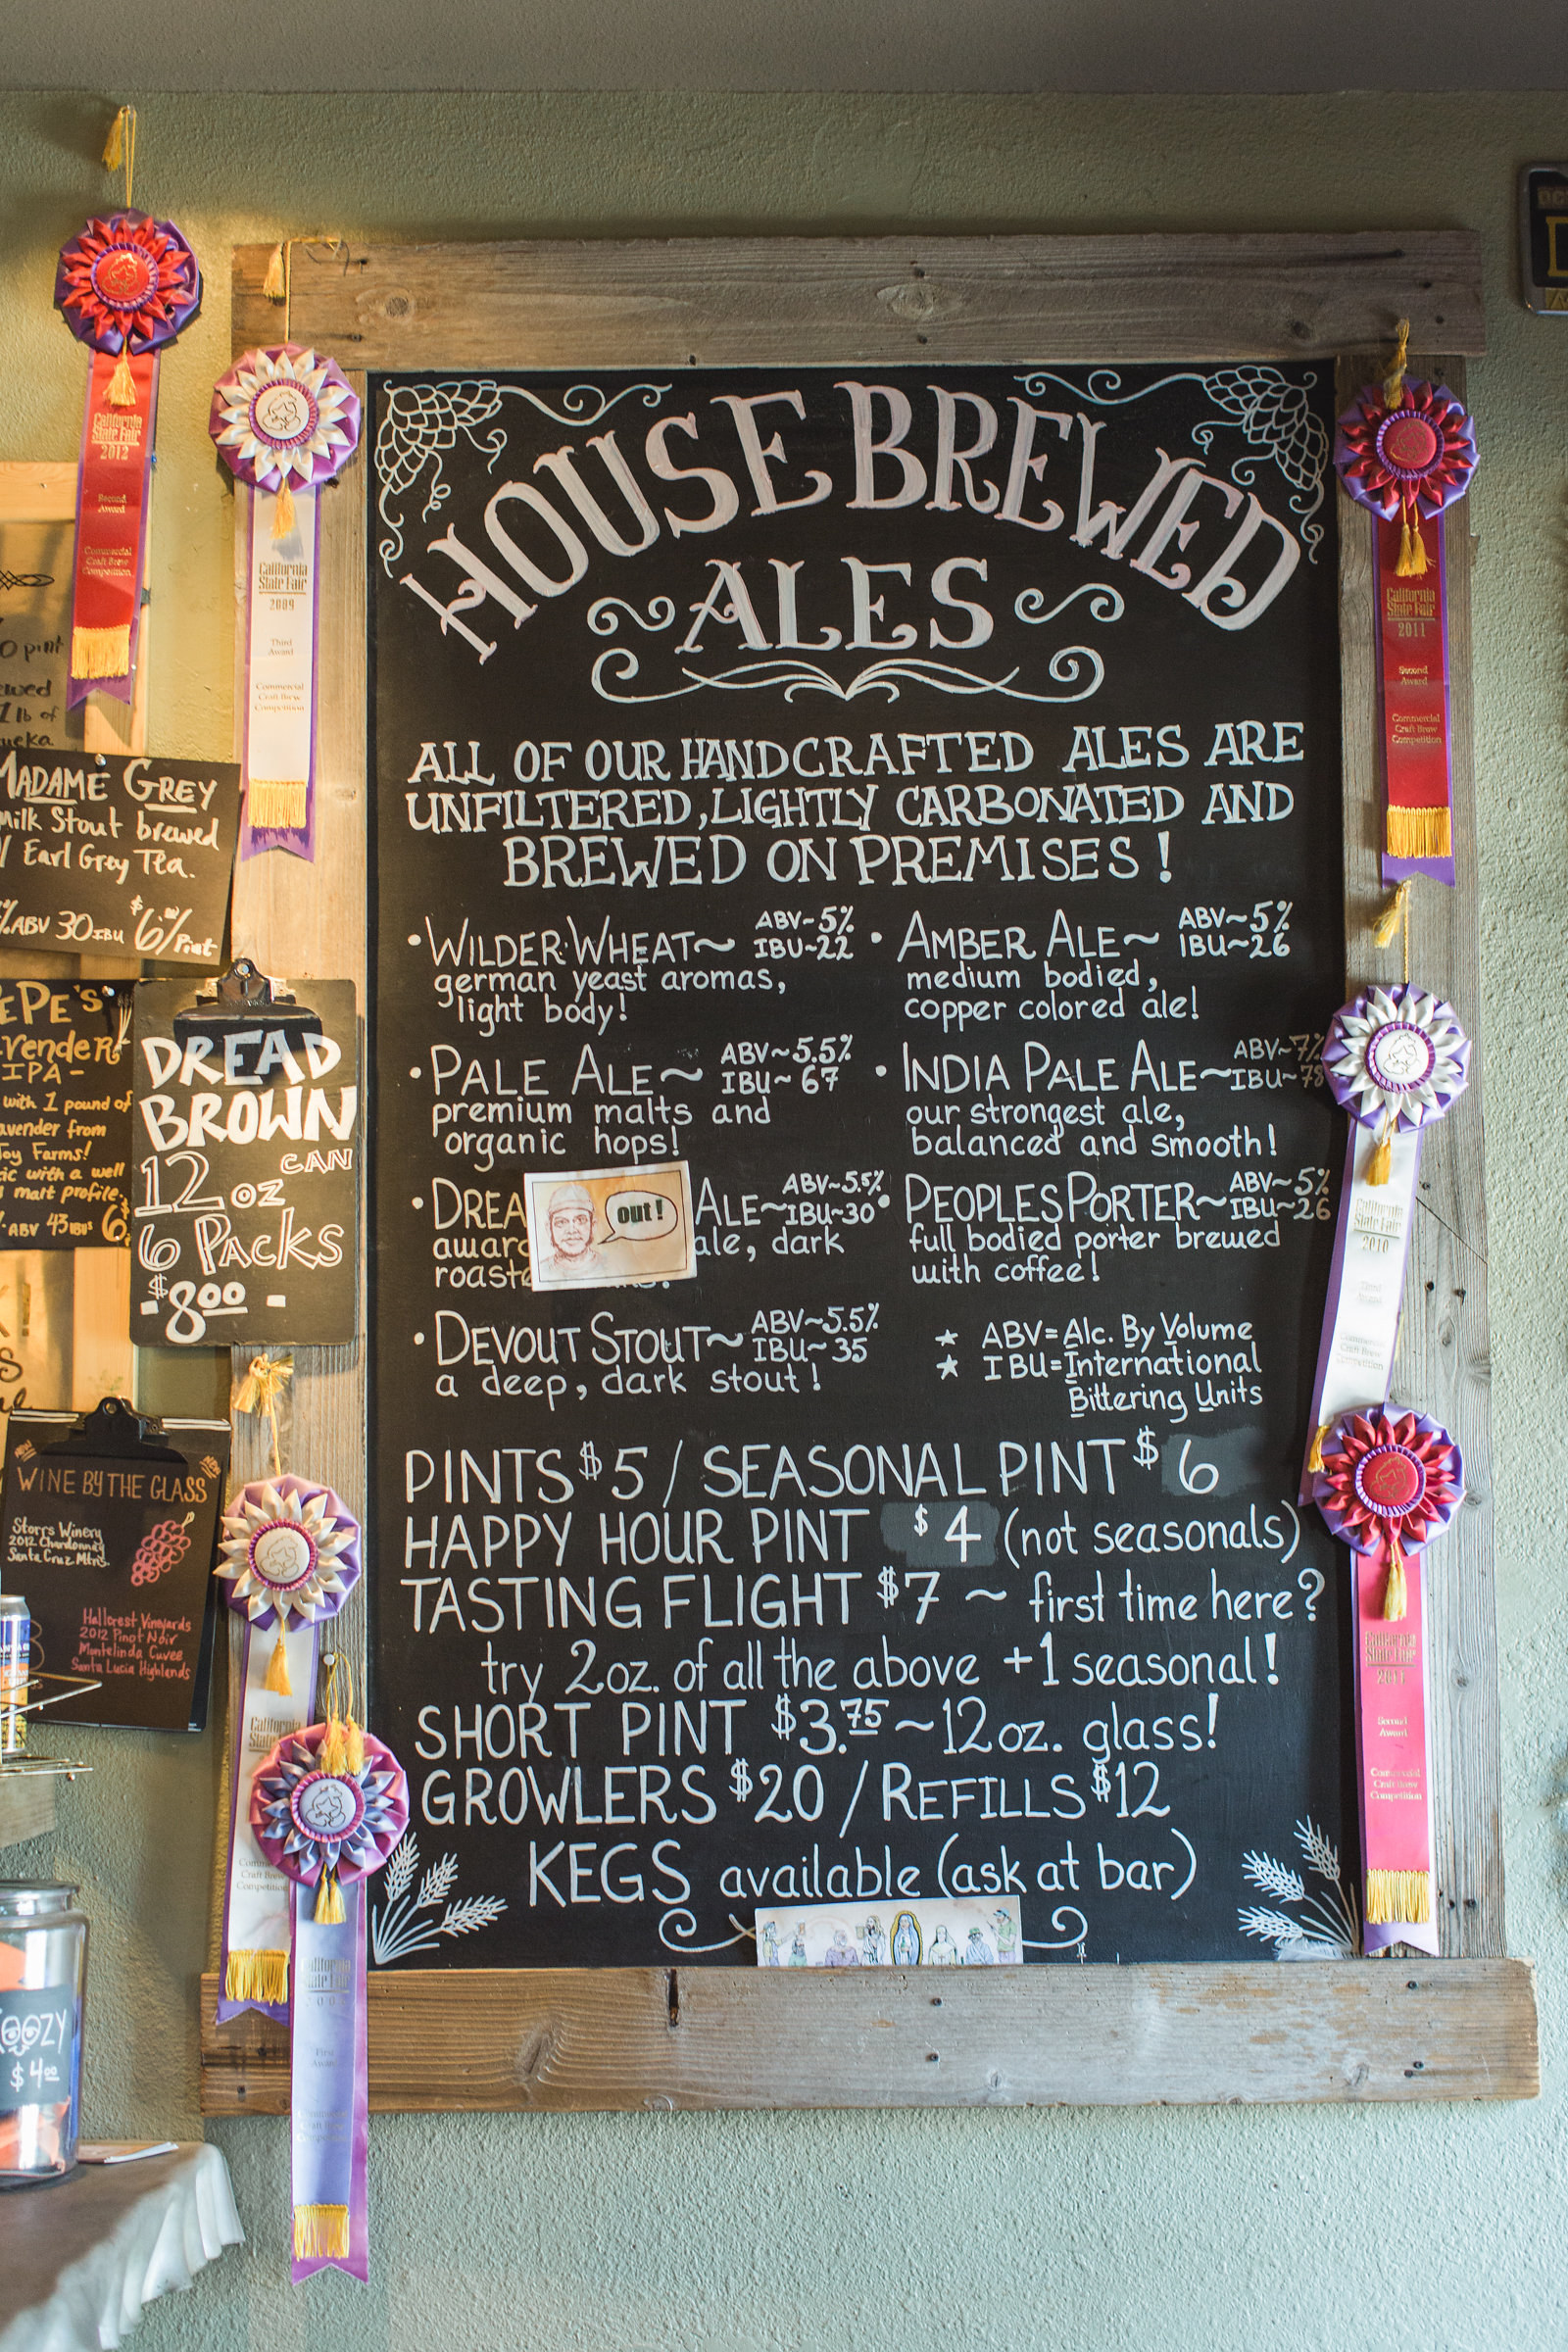 HOUSE BREWED
ALES
ALL OF OUR HANDCRAFTED ALES ARE
UNFILTERED, LIGHTLY CARBONATED AND
BREWED ON PREMISES!
• WILDER WHEAT~ ABV~5%
IBU~22
german yeast aromas,
light body!
• AMBER ALE~ ABV~5%
IBU~26
medium bodied,
copper colored ale!
• PALE ALE~ ABV~5.5%
IBU~67
premium malts and
organic hops!
• INDIA PALE ALE~ ABV~7%
IBU~78
our strongest ale,
balanced and smooth!
• DREA ALE~ ABV~5.5%
IBU~30
out!
ale, dark
• PEOPLES PORTER~ ABV~5%
IBU~26
full bodied porter brewed
with coffee!
• DEVOUT STOUT~ ABV~5.5%
IBU~35
a deep, dark stout!
* ABV=Alc. By Volume
* IBU=International
Bittering Units
PINTS $5 / SEASONAL PINT $6
HAPPY HOUR PINT $4 (not seasonals)
TASTING FLIGHT $7 ~ first time here?
try 2oz. of all the above +1 seasonal!
SHORT PINT $3.75 ~12oz. glass!
GROWLERS $20 / REFILLS $12
KEGS available (ask at bar)
California
State Fair
2012
Second
Award
Commercial
Craft Brew
Competition
California
State Fair
2009
Third
Award
Commercial
Craft Brew
Competition
California
State Fair
2011
Second
Award
Commercial
Craft Brew
Competition
California
State Fair
2010
Third
Award
Commercial
Craft Brew
Competition
California
State Fair
2011
Second
Award
Commercial
Craft Brew
Competition
California
State Fair
Craft Brew
Competition
California
State Fair
First
Award
pint
1 lb of
MADAME GREY
Milk Stout brewed
w/ Earl Grey Tea.
% ABV 30 IBU $6.00/Pint
PEPE'S
IPA-
with 1 pound of
lavender from
Joy Farms!
with a well
malt profile.
ABV 43 IBU's 6
DREAD
BROWN
CAN
12 oz
6 PACKS
-$8.00-
New
New
WINE BY THE GLASS
Storrs Winery
2012 Chardonnay
Santa Cruz Mtns.
Hallcrest Vineyards
2012 Pinot Noir
Montelinda Cuvee
Santa Lucia Highlands
KOOZY
$4.00